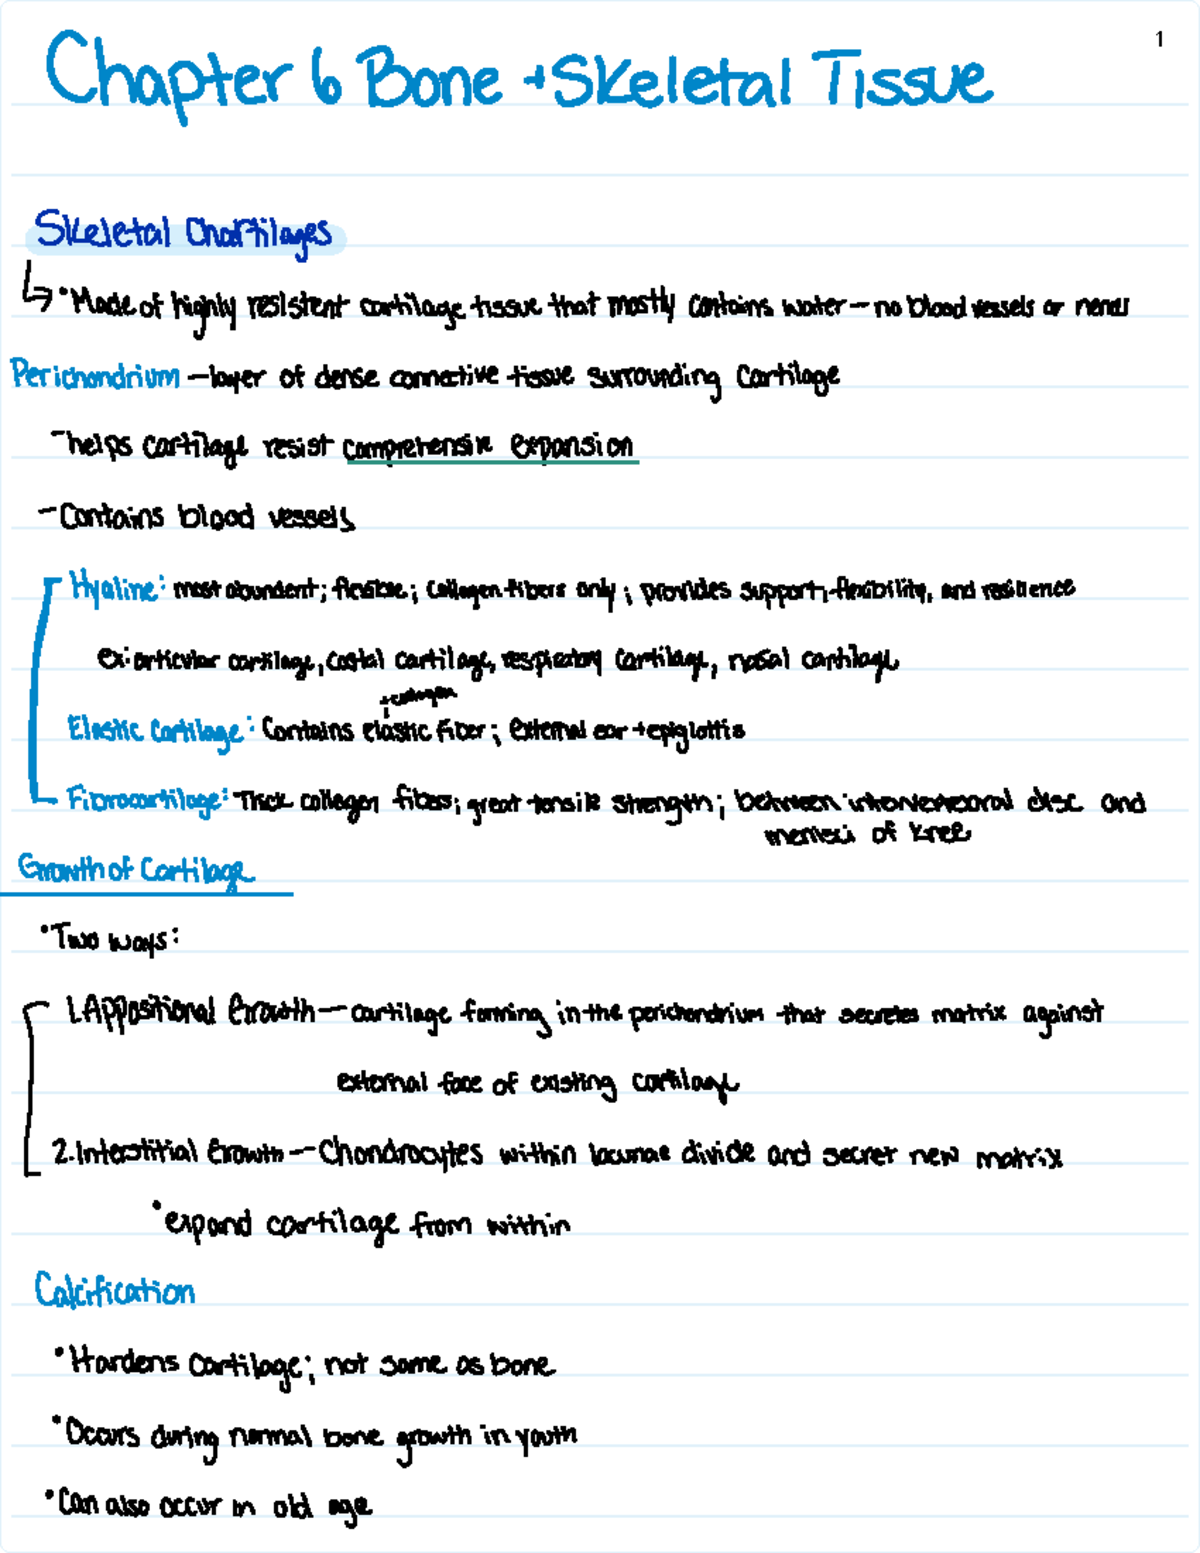 1
Chapter 6 Bone + Skeletal Tissue
Skeletal Chartilages
↳ •Made of highly resistent cartilage tissue that mostly contains water — no blood vessels or nerves
Perichondrium — layer of dense connective tissue surrounding Cartilage
- helps cartilage resist comprehensive expansion
- Contains blood vessels
Hyaline: most abundent; flexible; collagen fibers only; provides support, flexibility, and resilience
ex: articular cartilage, costal cartilage, respiratory cartilage, nasal cartilage
+ collagen
Elastic Cartilage: Contains elastic fiber; external ear + epiglottis
Fibrocartilage: Thick collagen fibers; great tensile strength; between intervertebral disc and
menisci of knee
Growth of Cartilage
•Two ways:
1. Appositional Growth — cartilage forming in the perichondrium that secretes matrix against
external face of existing cartilage
2. Interstitial Growth — Chondrocytes within lacunae divide and secret new matrix
•expand cartilage from within
Calcification
•Hardens cartilage; not same as bone
•Occurs during normal bone growth in youth
•Can also occur in old age